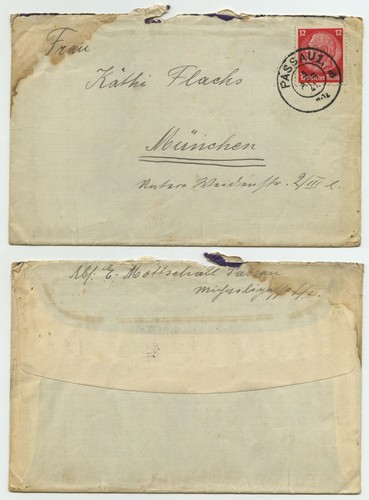 Frau
Käthi Flachs
München
Untere Weidenstr. 2/III l.
12 12
Deutsches Reich
PASSAU
Abs. E. Mottschall Passau